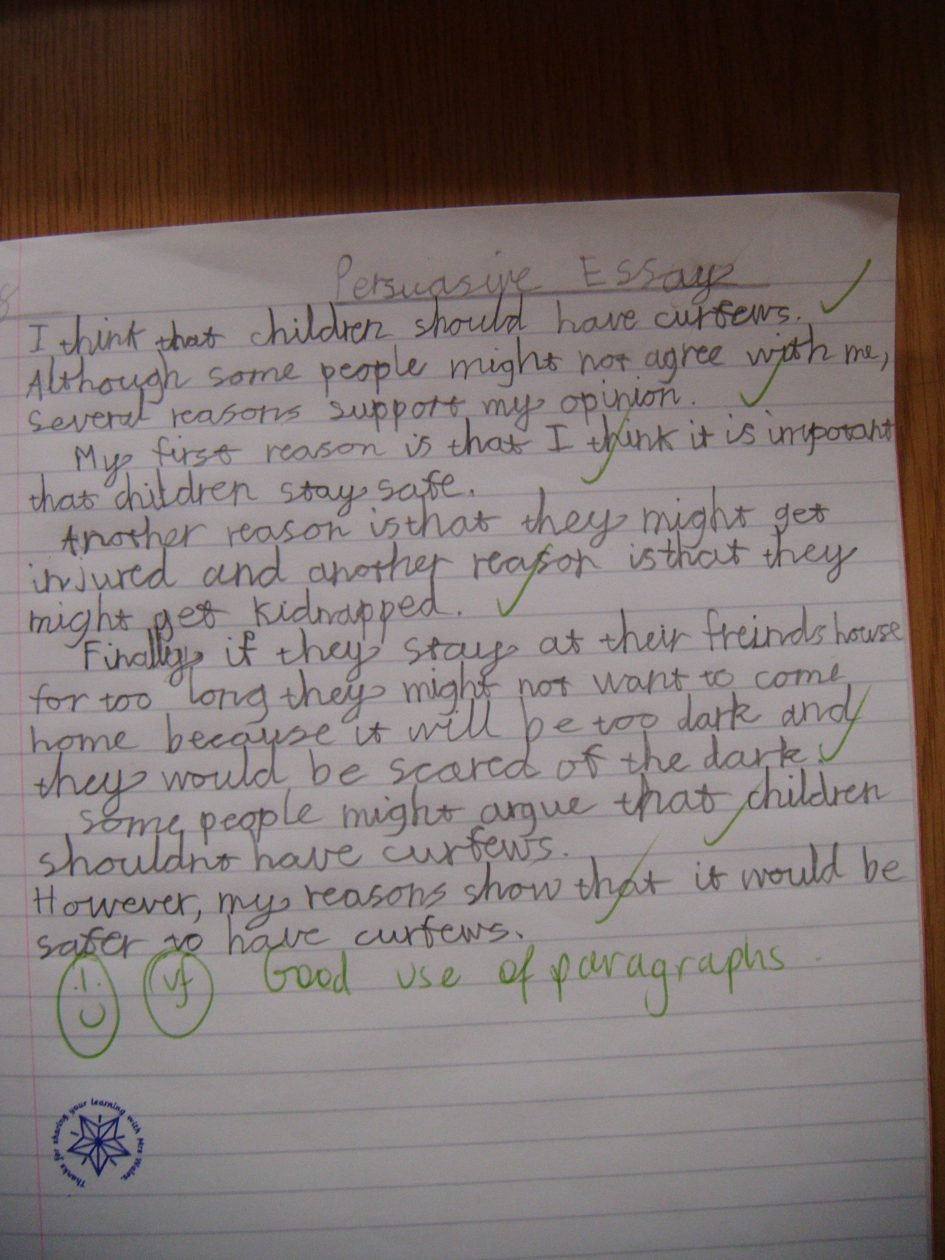 Persuasive Essay
I think that children should have curfews.
Although some people might not agree with me,
Several reasons support my opinion.
My first reason is that I think it is impotant
that children stay safe.
Another reason is that they might get
injured and another reason is that they
might get kidnapped.
Finally, if they stay at their freinds house
for too long they might not want to come
home because it will be too dark and
they would be scared of the dark.
Some people might argue that children
shouldnt have curfews.
However, my reasons show that it would be
safer to have curfews.
vf Good use of paragraphs.
Thanks for sharing your learning with Mrs